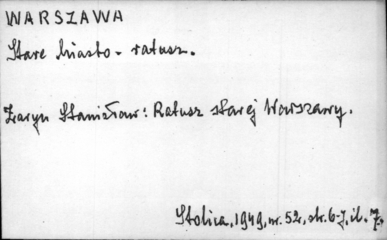 WARSZAWA
Stare Miasto - ratusz.
Żaryn Stanisław: Ratusz starej Warszawy.
Stolica, 1949, nr. 52, str. 6-7, il. 7.